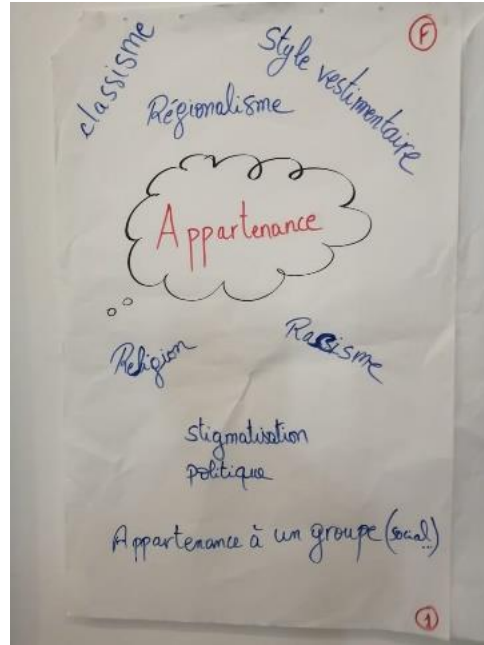 classisme
Style vestimentaire
F
Régionalisme
Appartenance
Religion
Racisme
stigmatisation
politique
Appartenance à un groupe (social...)
1